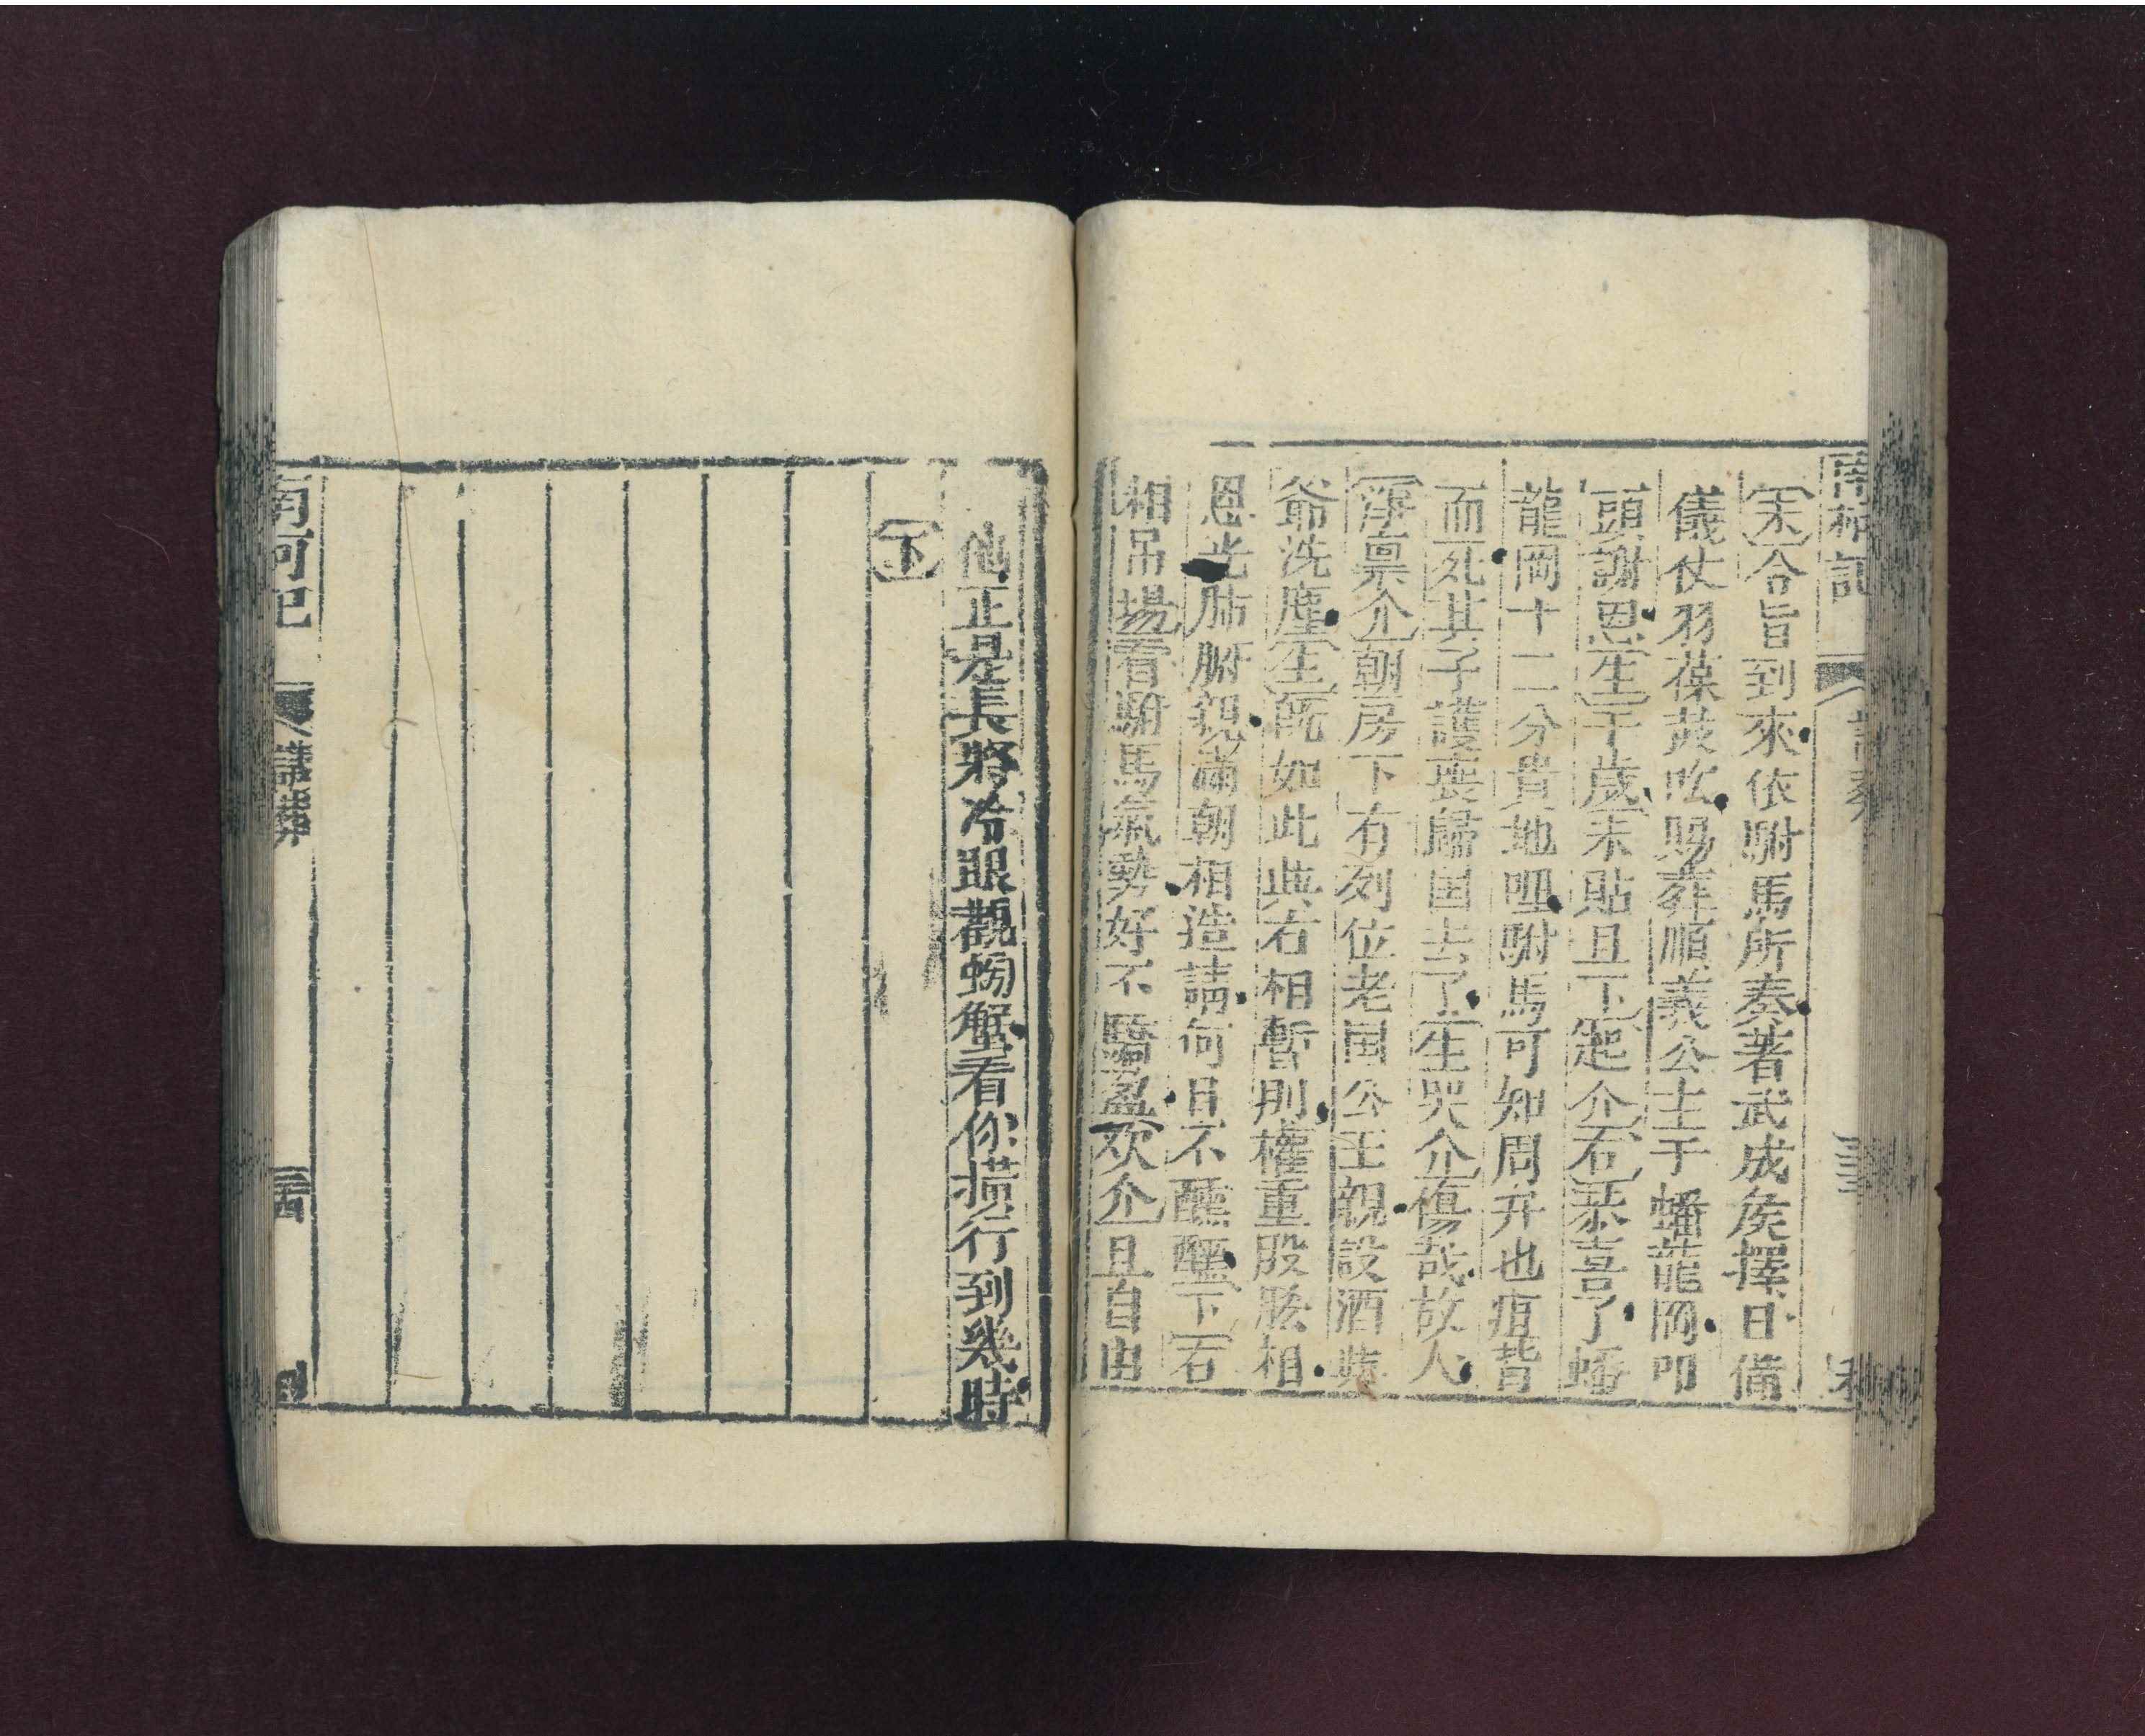 南柯記
内合旨到來依駙馬所奏著武成矦擇日備
儀仗羽葆鼓吹賜葬順義公主于蟠龍岡叩
頭謝恩生千歲末貼旦下起介右恭喜了蟠
龍岡十二分貴地哩駙馬可知周弁也疽背
而死其子護喪歸国去了生哭介傷哉故人
淨禀介朝房下有列位老国公王親設酒
爺洗塵生旣如此與右相暫別權重股肱相
恩光肺腑親滿朝相造請何日不醺醺下右
相吊場看駙馬氣勢好不驕盈欢介且自由
他正是長將冷眼觀螃蟹看你橫行到幾時
下
南柯記